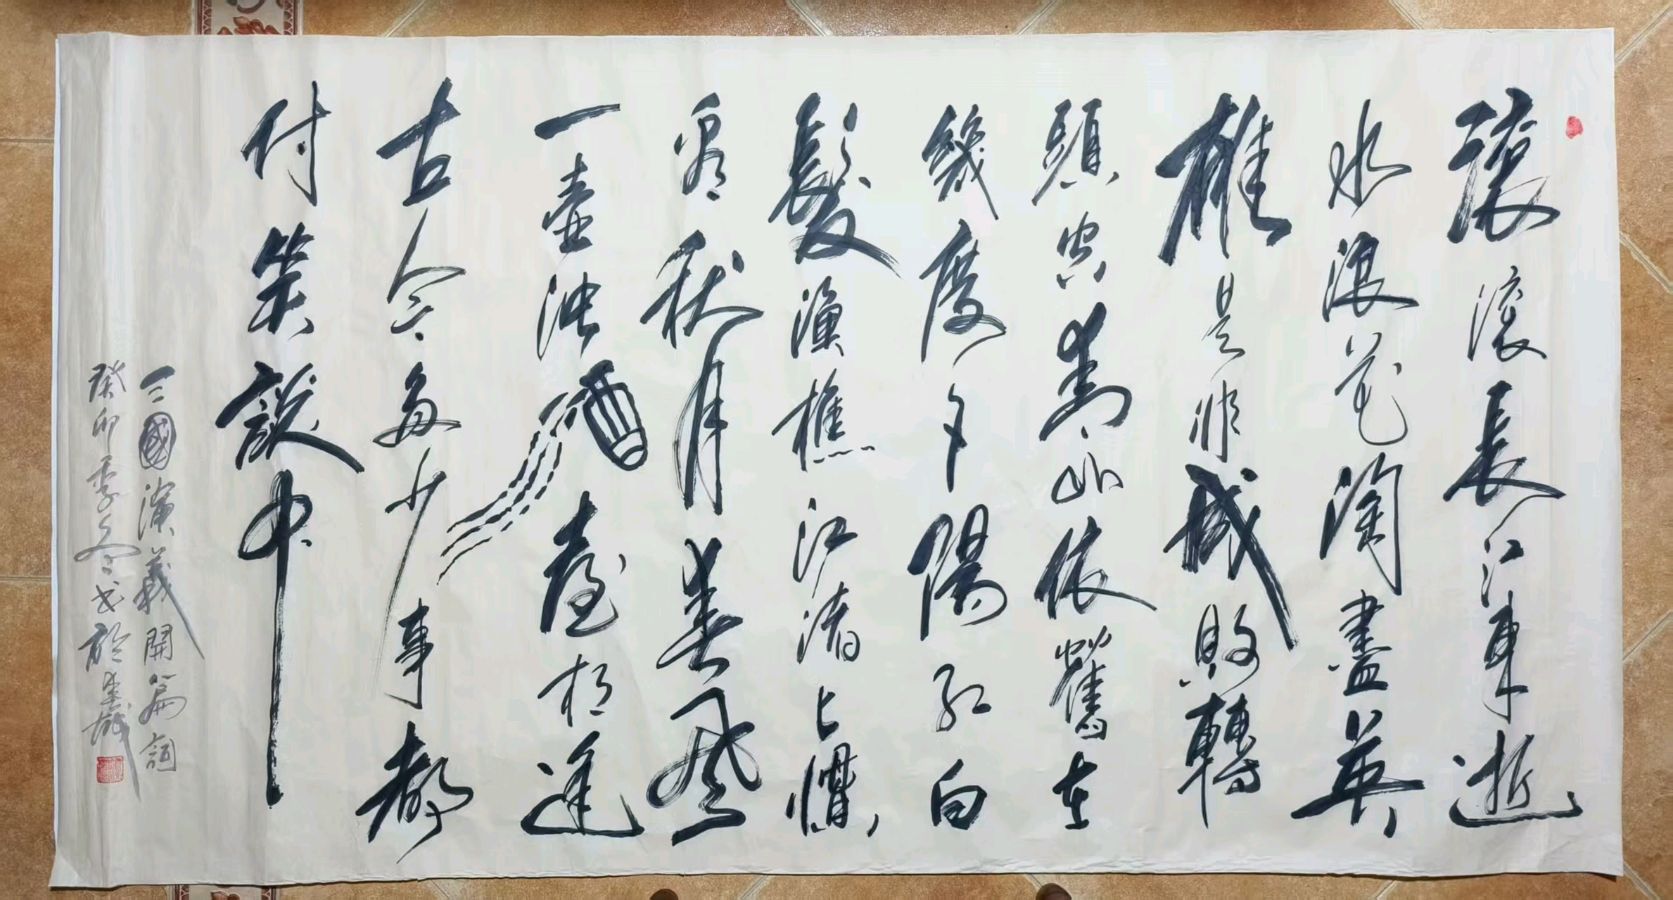 滚滚長江東逝
水浪花淘盡英
雄是非成敗轉
頭空青山依舊在
幾度夕陽红白
髮漁樵江渚上慣
看秋月春風
一壺浊酒喜相逢
古今多少事都
付笑談中
三國演義開篇詞
癸卯季冬书於